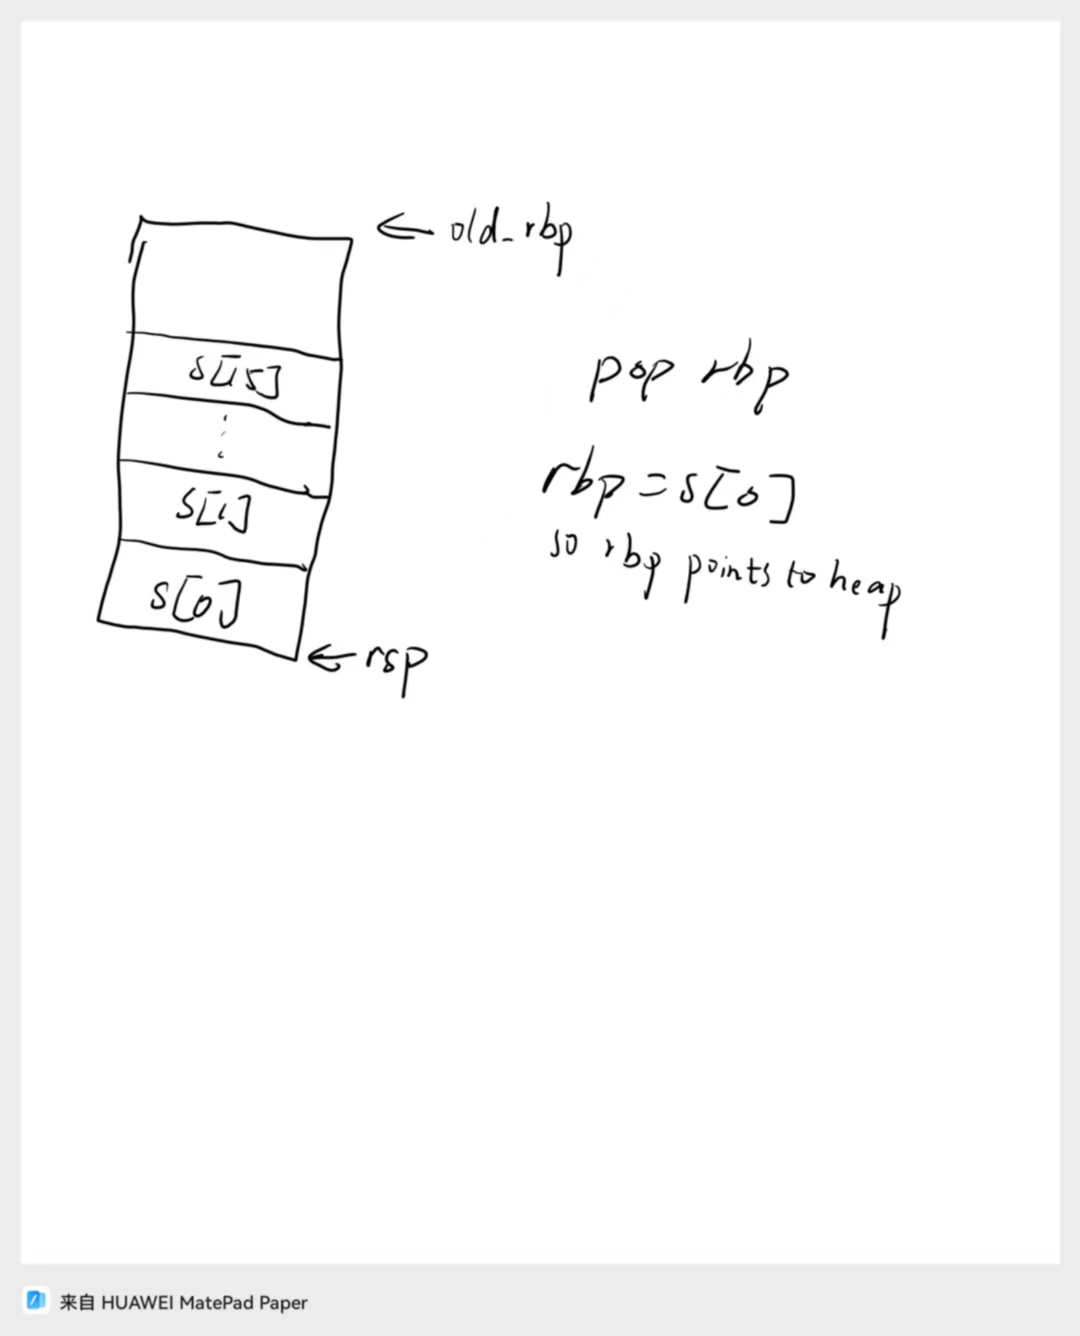 ← old_rbp
s[15]
⋮
s[1]
s[0]
← rsp
pop rbp
rbp = s[0]
so rbp points to heap
来自 HUAWEI MatePad Paper